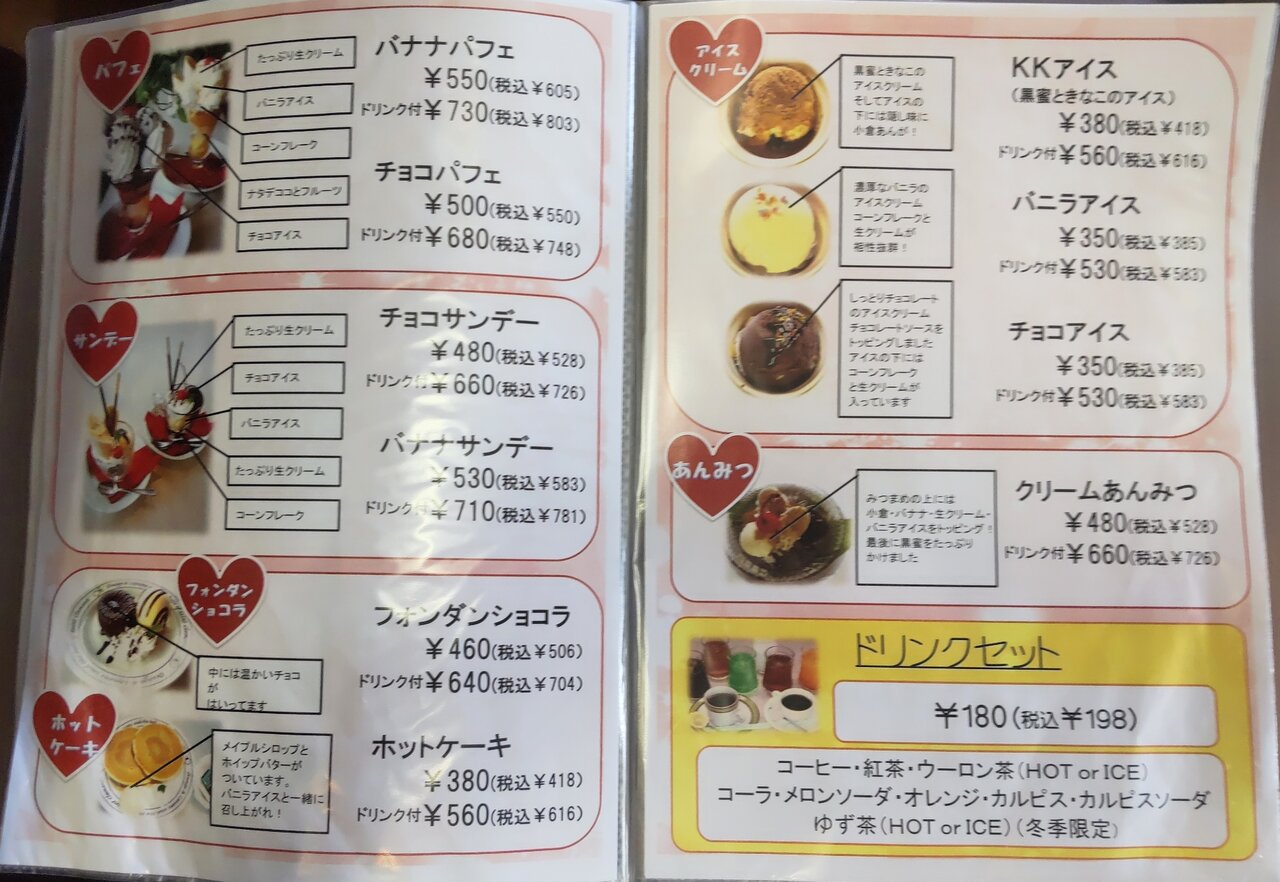 パフェ
たっぷり生クリーム
バニラアイス
コーンフレーク
ナタデココとフルーツ
チョコアイス
バナナパフェ
￥550(税込￥605)
ドリンク付￥730(税込￥803)
チョコパフェ
￥500(税込￥550)
ドリンク付￥680(税込￥748)
サンデー
たっぷり生クリーム
チョコアイス
バニラアイス
たっぷり生クリーム
コーンフレーク
チョコサンデー
￥480(税込￥528)
ドリンク付￥660(税込￥726)
バナナサンデー
￥530(税込￥583)
ドリンク付￥710(税込￥781)
フォンダン
ショコラ
中には温かいチョコ
が
はいってます
フォンダンショコラ
￥460(税込￥506)
ドリンク付￥640(税込￥704)
ホット
ケーキ
メイプルシロップと
ホイップバターが
ついています。
バニラアイスと一緒に
召し上がれ！
ホットケーキ
￥380(税込￥418)
ドリンク付￥560(税込￥616)
アイス
クリーム
黒蜜ときなこの
アイスクリーム
そしてアイスの
下には隠し味に
小倉あんが！
KKアイス
(黒蜜ときなこのアイス)
￥380(税込￥418)
ドリンク付￥560(税込￥616)
濃厚なバニラの
アイスクリーム
コーンフレークと
生クリームが
相性抜群！
バニラアイス
￥350(税込￥385)
ドリンク付￥530(税込￥583)
しっとりチョコレート
のアイスクリーム
チョコレートソースを
トッピングしました
アイスの下には
コーンフレーク
と生クリームが
入っています
チョコアイス
￥350(税込￥385)
ドリンク付￥530(税込￥583)
あんみつ
みつまめの上には
小倉・バナナ・生クリーム・
バニラアイスをトッピング！
最後に黒蜜をたっぷり
かけました
クリームあんみつ
￥480(税込￥528)
ドリンク付￥660(税込￥726)
ドリンクセット
￥180(税込￥198)
コーヒー・紅茶・ウーロン茶(HOT or ICE)
コーラ・メロンソーダ・オレンジ・カルピス・カルピスソーダ
ゆず茶(HOT or ICE)(冬季限定)